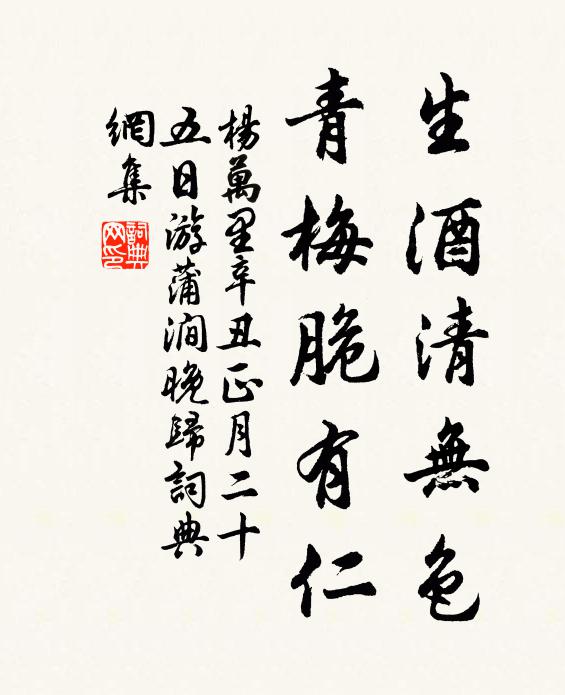 生酒清無色
青梅脆有仁
楊萬里辛丑正月二十
五日游蒲澗晚歸詞典
網集
詞典
网印